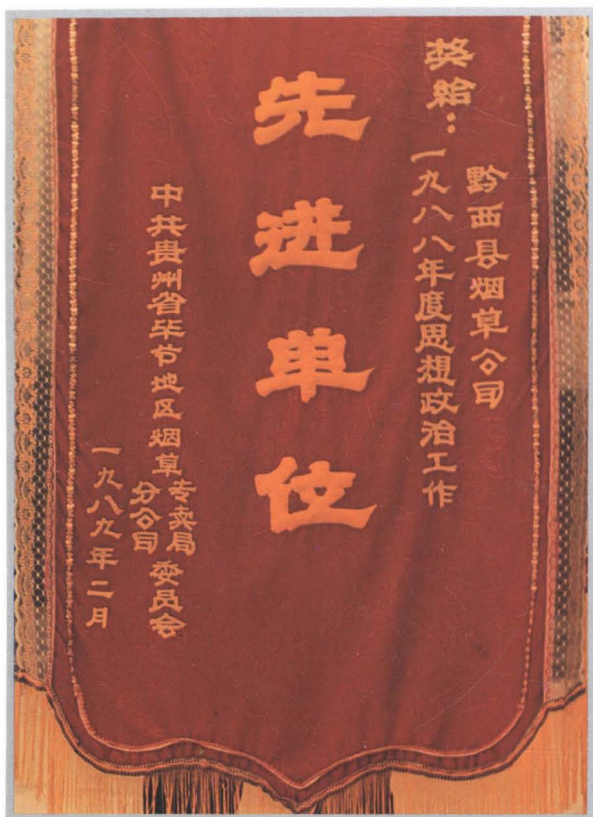 奖给：
黔西县烟草公司
一九八八年度思想政治工作
先进单位
中共贵州省毕节地区烟草专卖局分公司委员会
一九八九年二月